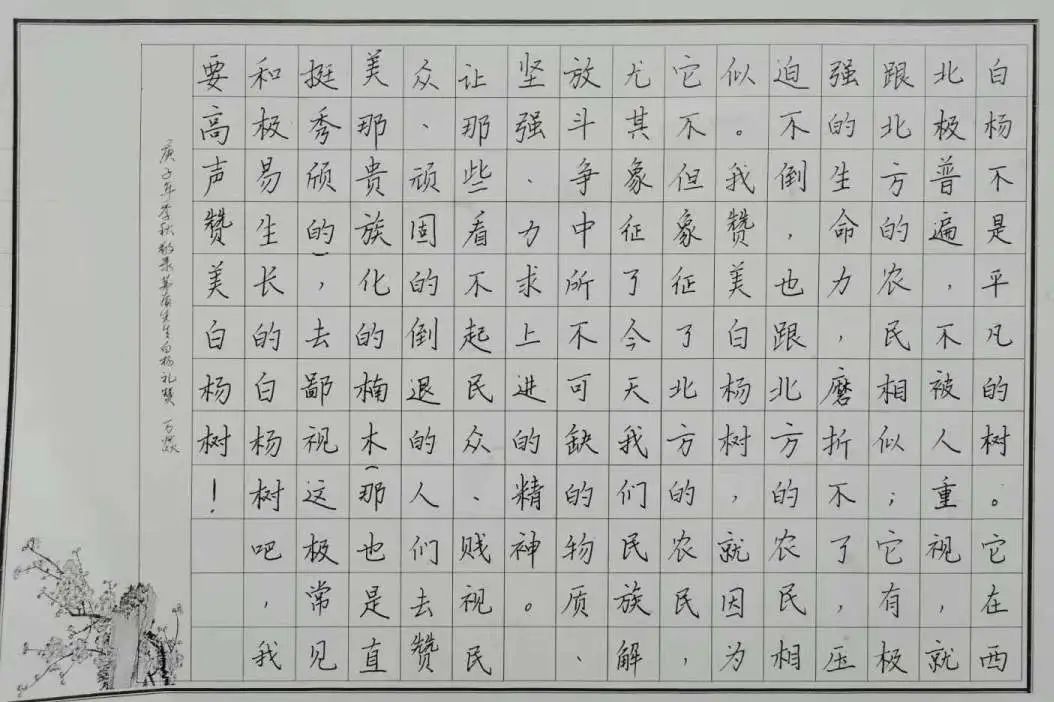 白杨不是平凡的树。它在西
北极普遍，不被人重视，就
跟北方的农民相似；它有极
强的生命力，磨折不了，压
迫不倒，也跟北方的农民相
似。我赞美白杨树，就因为
它不但象征了北方的农民，
尤其象征了今天我们民族解
放斗争中所不可缺的物质、
坚强、力求上进的精神。
让那些看不起民众、贱视民
众、顽固的倒退的人们去赞
美那贵族化的楠木（那也是直
挺秀颀的），去鄙视这极常见
和极易生长的白杨树吧，我
要高声赞美白杨树！
庚子年季秋敬录茅盾先生白杨礼赞 万